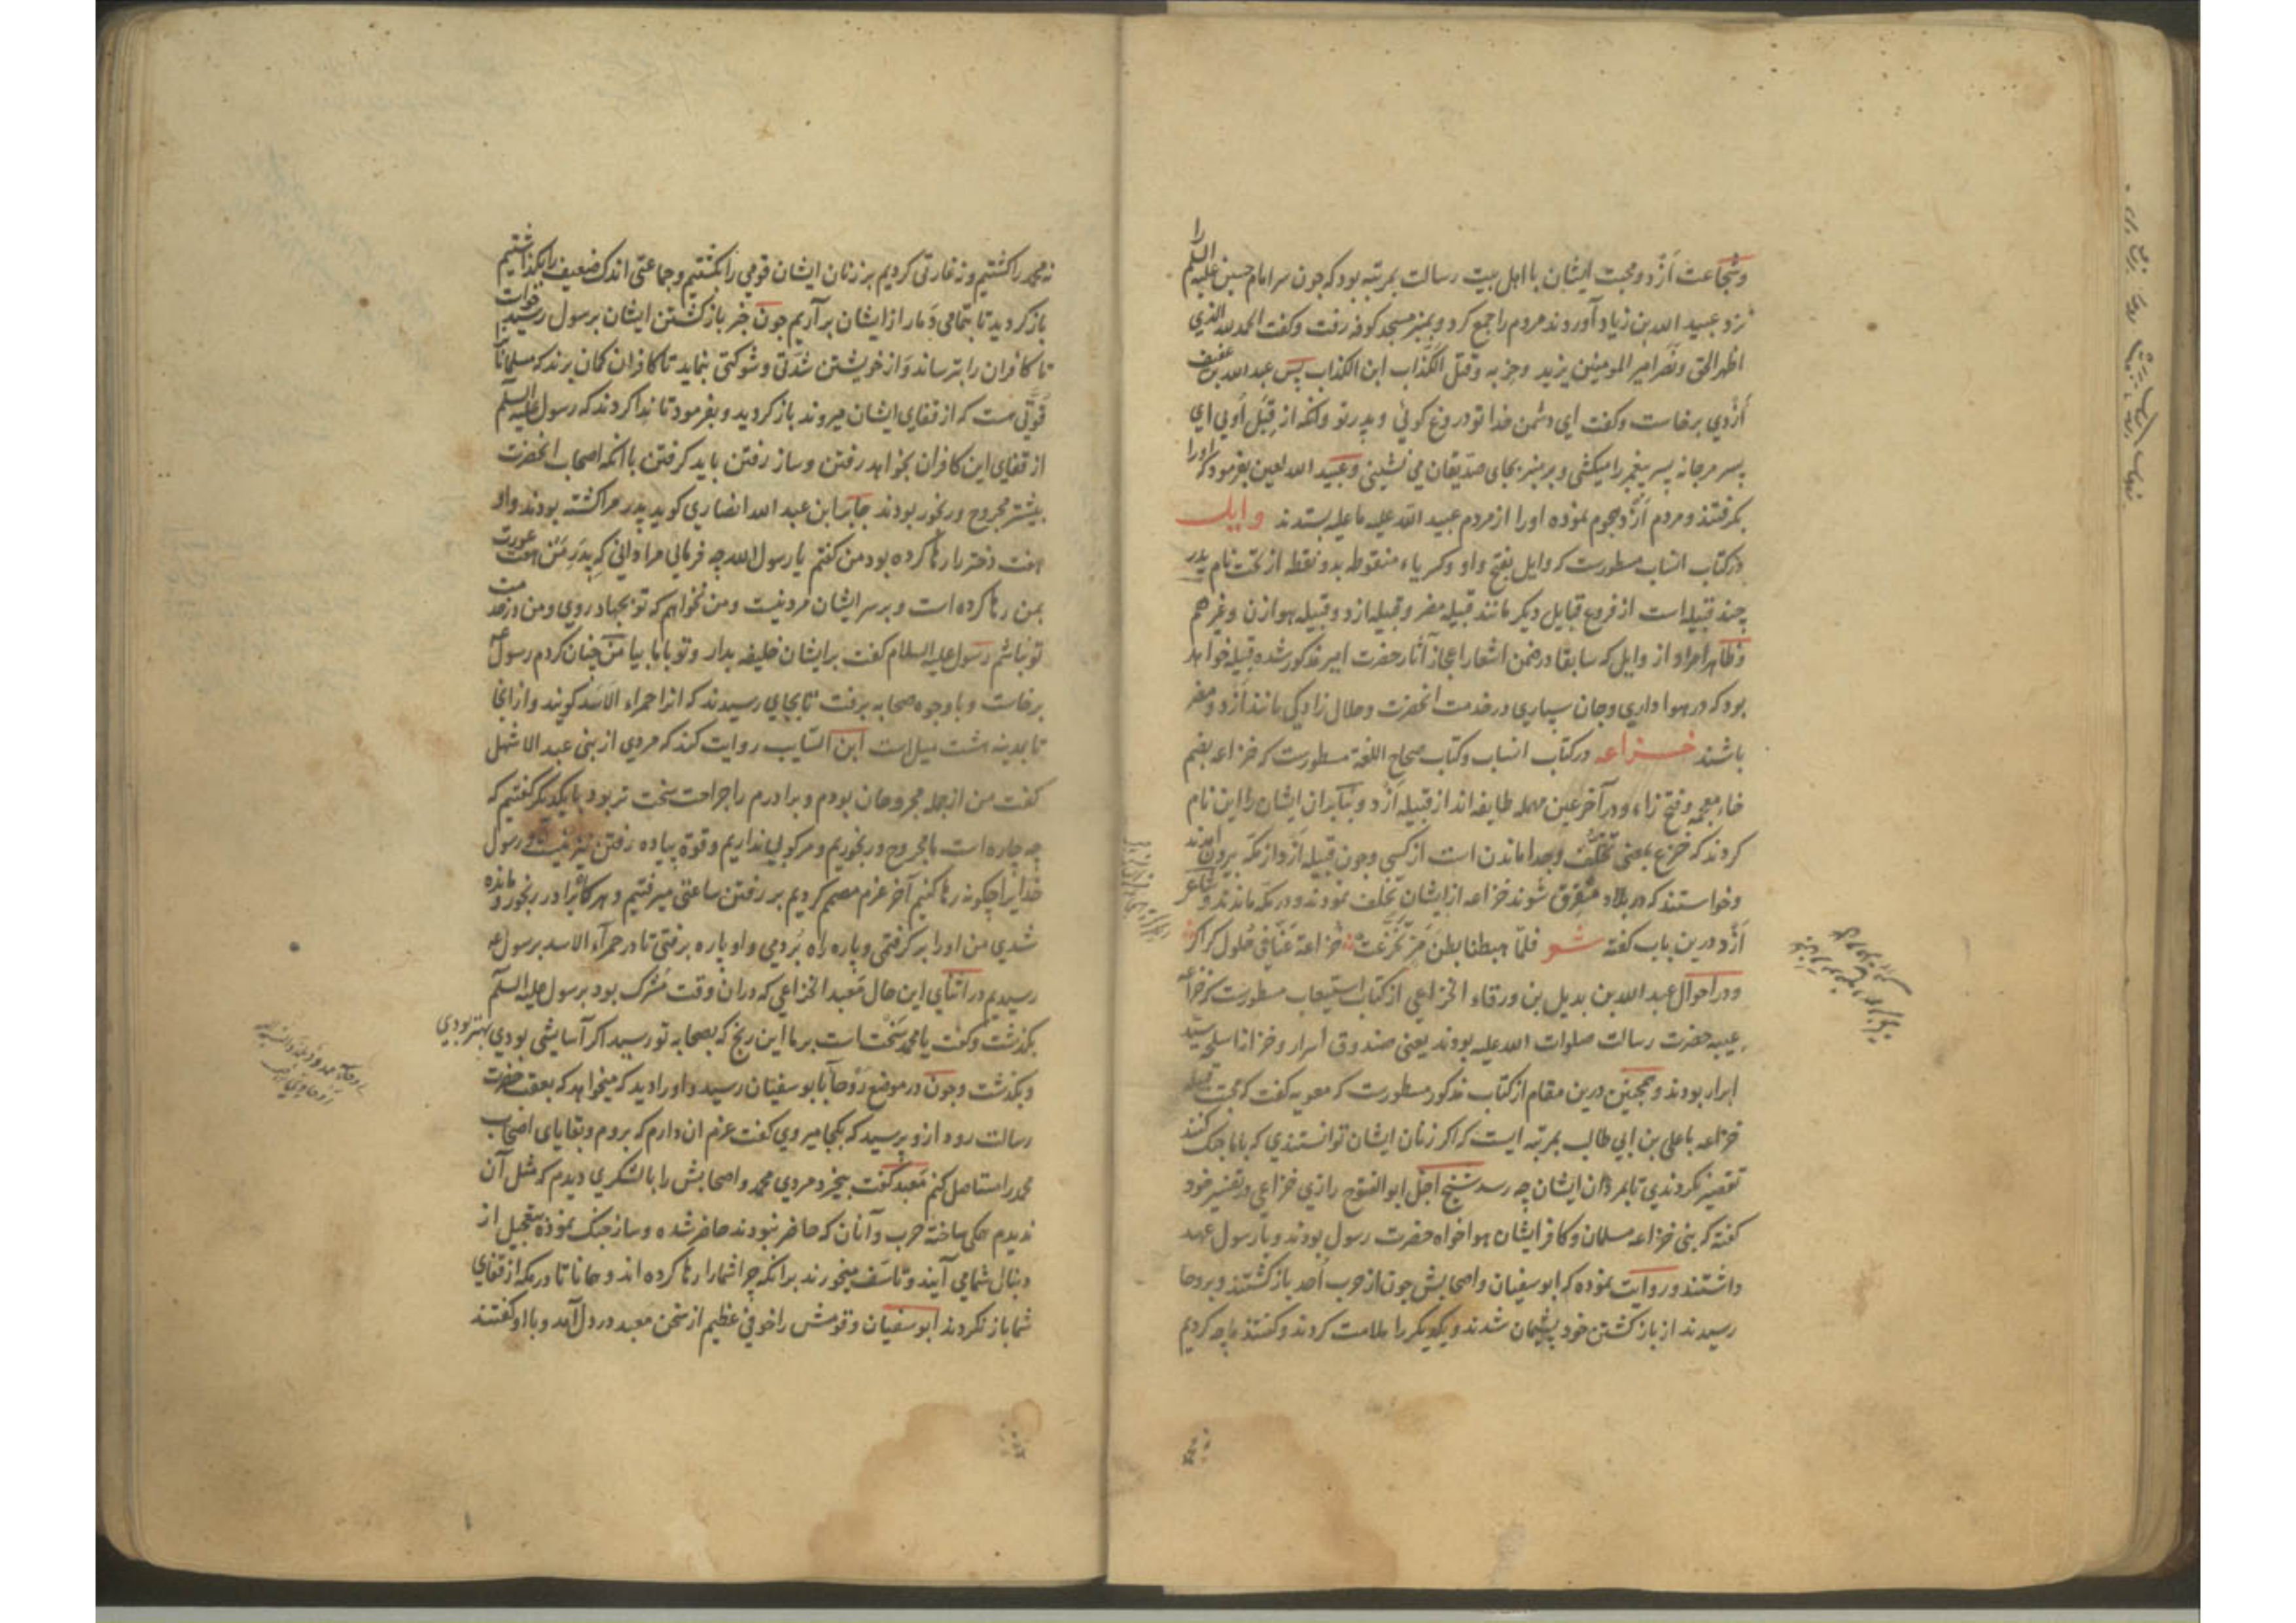 وشجاعت ازد ومحبت ایشان با اهل بیت رسالت بمرتبه بود که چون سر امام حسین علیه السلم را
نزد عبید الله بن زیاد آوردند مردم را جمع کرد و بمنبر مسجد کوفه رفت وکفت الحمد لله الذی
اظهر الحق ونصر امیر المومنین یزید وحزبه وقتل الکذاب ابن الکذاب پس عبد الله بن عفیف
ازدی برخاست وکفت ای دشمن خدا تو دروغ کوئی وپدر تو وانکه از قبل اوئی ای
پسر مرجانه پسر پیغمبر را میکشی و بر منبر بجای صدیقان می نشینی وعبید الله لعین بفرمود که او را
بکرفتند ومردم ازد هجوم نموده او را از مردم عبید الله علیه ما علیه بستدند وایل
در کتاب انساب مسطورست که وایل بفتح واو وکسر یاء منقوطه بدو نقطه از تحت نام پدر
چند قبیله است از فروع قبایل دیکر مانند قبیله مضر وقبیله ازد وقبیله هوازن وغیرهم
وظاهرا مراد از وایل که سابقا در ضمن اشعار اعجاز آثار حضرت امیر مذکور شده قبیله خواهد
بود که در هواداری وجان سپاری در خدمت انحضرت وحلال زادکی مانند ازد ومضر
باشند خزاعه در کتاب انساب وکتاب صحاح اللغة مسطورست که خزاعه بضم
خاء معجمه وفتح زاء ودر آخر عین مهمله طایفه اند از قبیله ازد وبنابران ایشان را این نام
کردند که خزع بمعنی تخلف وجدا ماندن است از کسی وچون قبیله ازد از مکه بیرون امدند
وخواستند که در بلاد متفرق شوند خزاعه از ایشان تخلف نمودند ودر مکه ماندند وشاعر
ازد درین باب کفته شعر فلما هبطنا بطن مر تخزعت خزاعة عنا فی حلول کراکر
ودر احوال عبد الله بن بدیل بن ورقاء الخزاعی از کتاب استیعاب مسطورست که خزاعه
عیبه حضرت رسالت صلوات الله علیه بودند یعنی صندوق اسرار وخزانه اسلحه سید
ابرار بودند وهمچنین درین مقام از کتاب مذکور مسطورست که معویه کفت که محبت قبیله
خزاعه با علی بن ابی طالب بمرتبه ایست که اکر زنان ایشان توانستندی که با ما جنک کنند
تقصیر نکردندی تا بمردان ایشان چه رسد شیخ اجل ابو الفتوح رازی خزاعی در تفسیر خود
کفته که بنی خزاعه مسلمان وکافر ایشان هواخواه حضرت رسول بودند وبا رسول عهد
داشتند وروایت نموده که ابو سفیان واصحابش چون از حرب احد باز کشتند وبروحا
رسیدند از باز کشتن خود پشیمان شدند ویکدیکر را ملامت کردند وکفتند ما چه کردیم
نه محمد را کشتیم ونه غارتی کردیم بر زنان ایشان قومی را بکشتیم وجماعتی اندک ضعیف را بکذاشتیم
باز کردید تا بتمامی دمار از ایشان بر آریم چون خبر باز کشتن ایشان برسول رسید خواست
تا کافران را بترساند واز خویشتن شدتی وشوکتی بنماید تا کافران کمان برند که مسلمانان را
قوتی هست که از قفای ایشان میروند باز کردید وبفرمود تا ندا کردند که رسول علیه السلم
از قفای این کافران بخواهد رفتن وساز رفتن باید کرفتن با انکه اصحاب انحضرت
بیشتر مجروح ورنجور بودند جابر ابن عبد الله انصاری کوید پدر مرا کشته بودند واو
هفت دختر را رها کرده بود من کفتم یا رسول الله چه فرمائی مرا دانی که پدر من هفت عورت
بمن رها کرده است وبر سر ایشان مرد نیست ومن نخواهم که تو بجهاد روی ومن در خدمت
تو نباشم رسول علیه السلام کفت بر ایشان خلیفه بدار وتو با ما بیا من چنان کردم رسول
برخاست وبا وجوه صحابه برفت تا بجایی رسیدند که انرا حمراء الاسد کویند واز انجا
تا بمدینه هشت میل است ابن السایب روایت کند که مردی از بنی عبد الاشهل
کفت من از جمله مجروحان بودم وبرادرم را جراحت سخت تر بود با یکدیکر کفتیم که
چه چاره است ما مجروح ورنجوریم ومرکوبی نداریم وقوة پیاده رفتن نیز نیست ورسول
خدایرا چکونه رها کنیم آخر عزم مصمم کردیم بر رفتن ساعتی میرفتیم وهرکاه برادر رنجور ومانده
شدی من او را بر کرفتمی وپاره راه بردمی واو پاره برفتی تا در حمراء الاسد برسول
رسیدیم در اثنای این حال معبد الخزاعی که دران وقت مشرک بود برسول علیه السلم
بکذشت وکفت یا محمد سخت است بر ما این رنج که بصحابه تو رسید اکر آسایشی بودی بهتر بودی
وبکذشت وچون در موضع روحا با بو سفیان رسید واو را دید که میخواهد که بعقب حضرت
رسالت رود ازو پرسید که بکجا میروی کفت عزم ان دارم که بروم وبقایای اصحاب
محمد را مستاصل کنم معبد کفت بیخرد مردی محمد واصحابش را با لشکری دیدم که مثل آن
ندیدم همکی ساخته حرب وآنان که حاضر نبودند حاضر شده وساز جنک نموده بتعجیل از
دنبال شما می آیند وتاسف میخورند برانکه چرا شما را رها کرده اند وهمانا تا در مکه از قفای
شما باز نکردند ابو سفیان وقومش را خوفی عظیم از سخن معبد در دل آمد وبا او کفتند